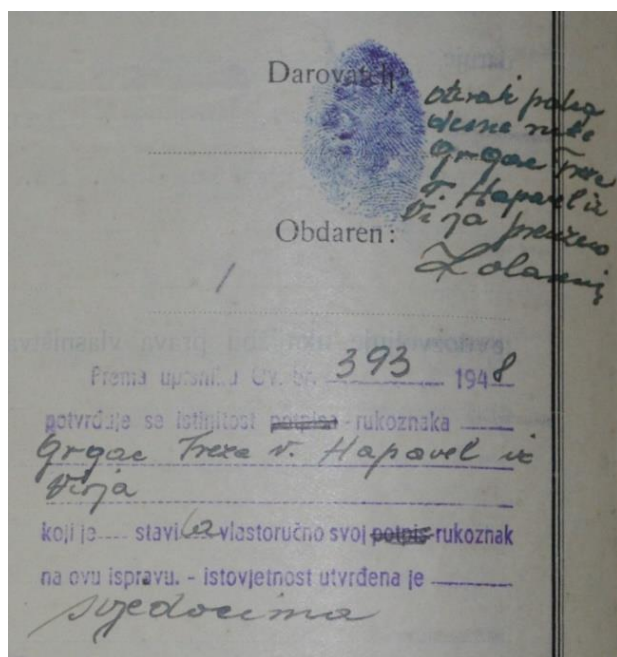 Darovatelj:
otisak palca
desne ruke
Grgac Treze
r. Hapavel iz
Virja
Obdaren:
Prema upisniku Ov. br. 393 1948
potvrđuje se istinitost potpisa - rukoznaka
Grgac Treze r. Hapavel iz
Virja
koji je stavila vlastoručno svoj potpis-rukoznak
na ovu ispravu. - istovjetnost utvrđena je
svjedocima